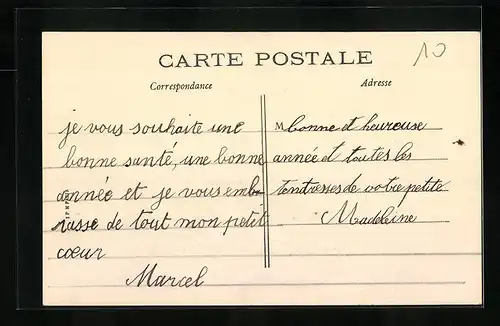 CARTE POSTALE
10
Correspondance
Adresse
je vous souhaite une
bonne santé, une bonne
année et je vous emb-
rasse de tout mon petit
cœur
Marcel
M bonne et heureuse
année et toutes les
tendresses de votre petite
Madeleine